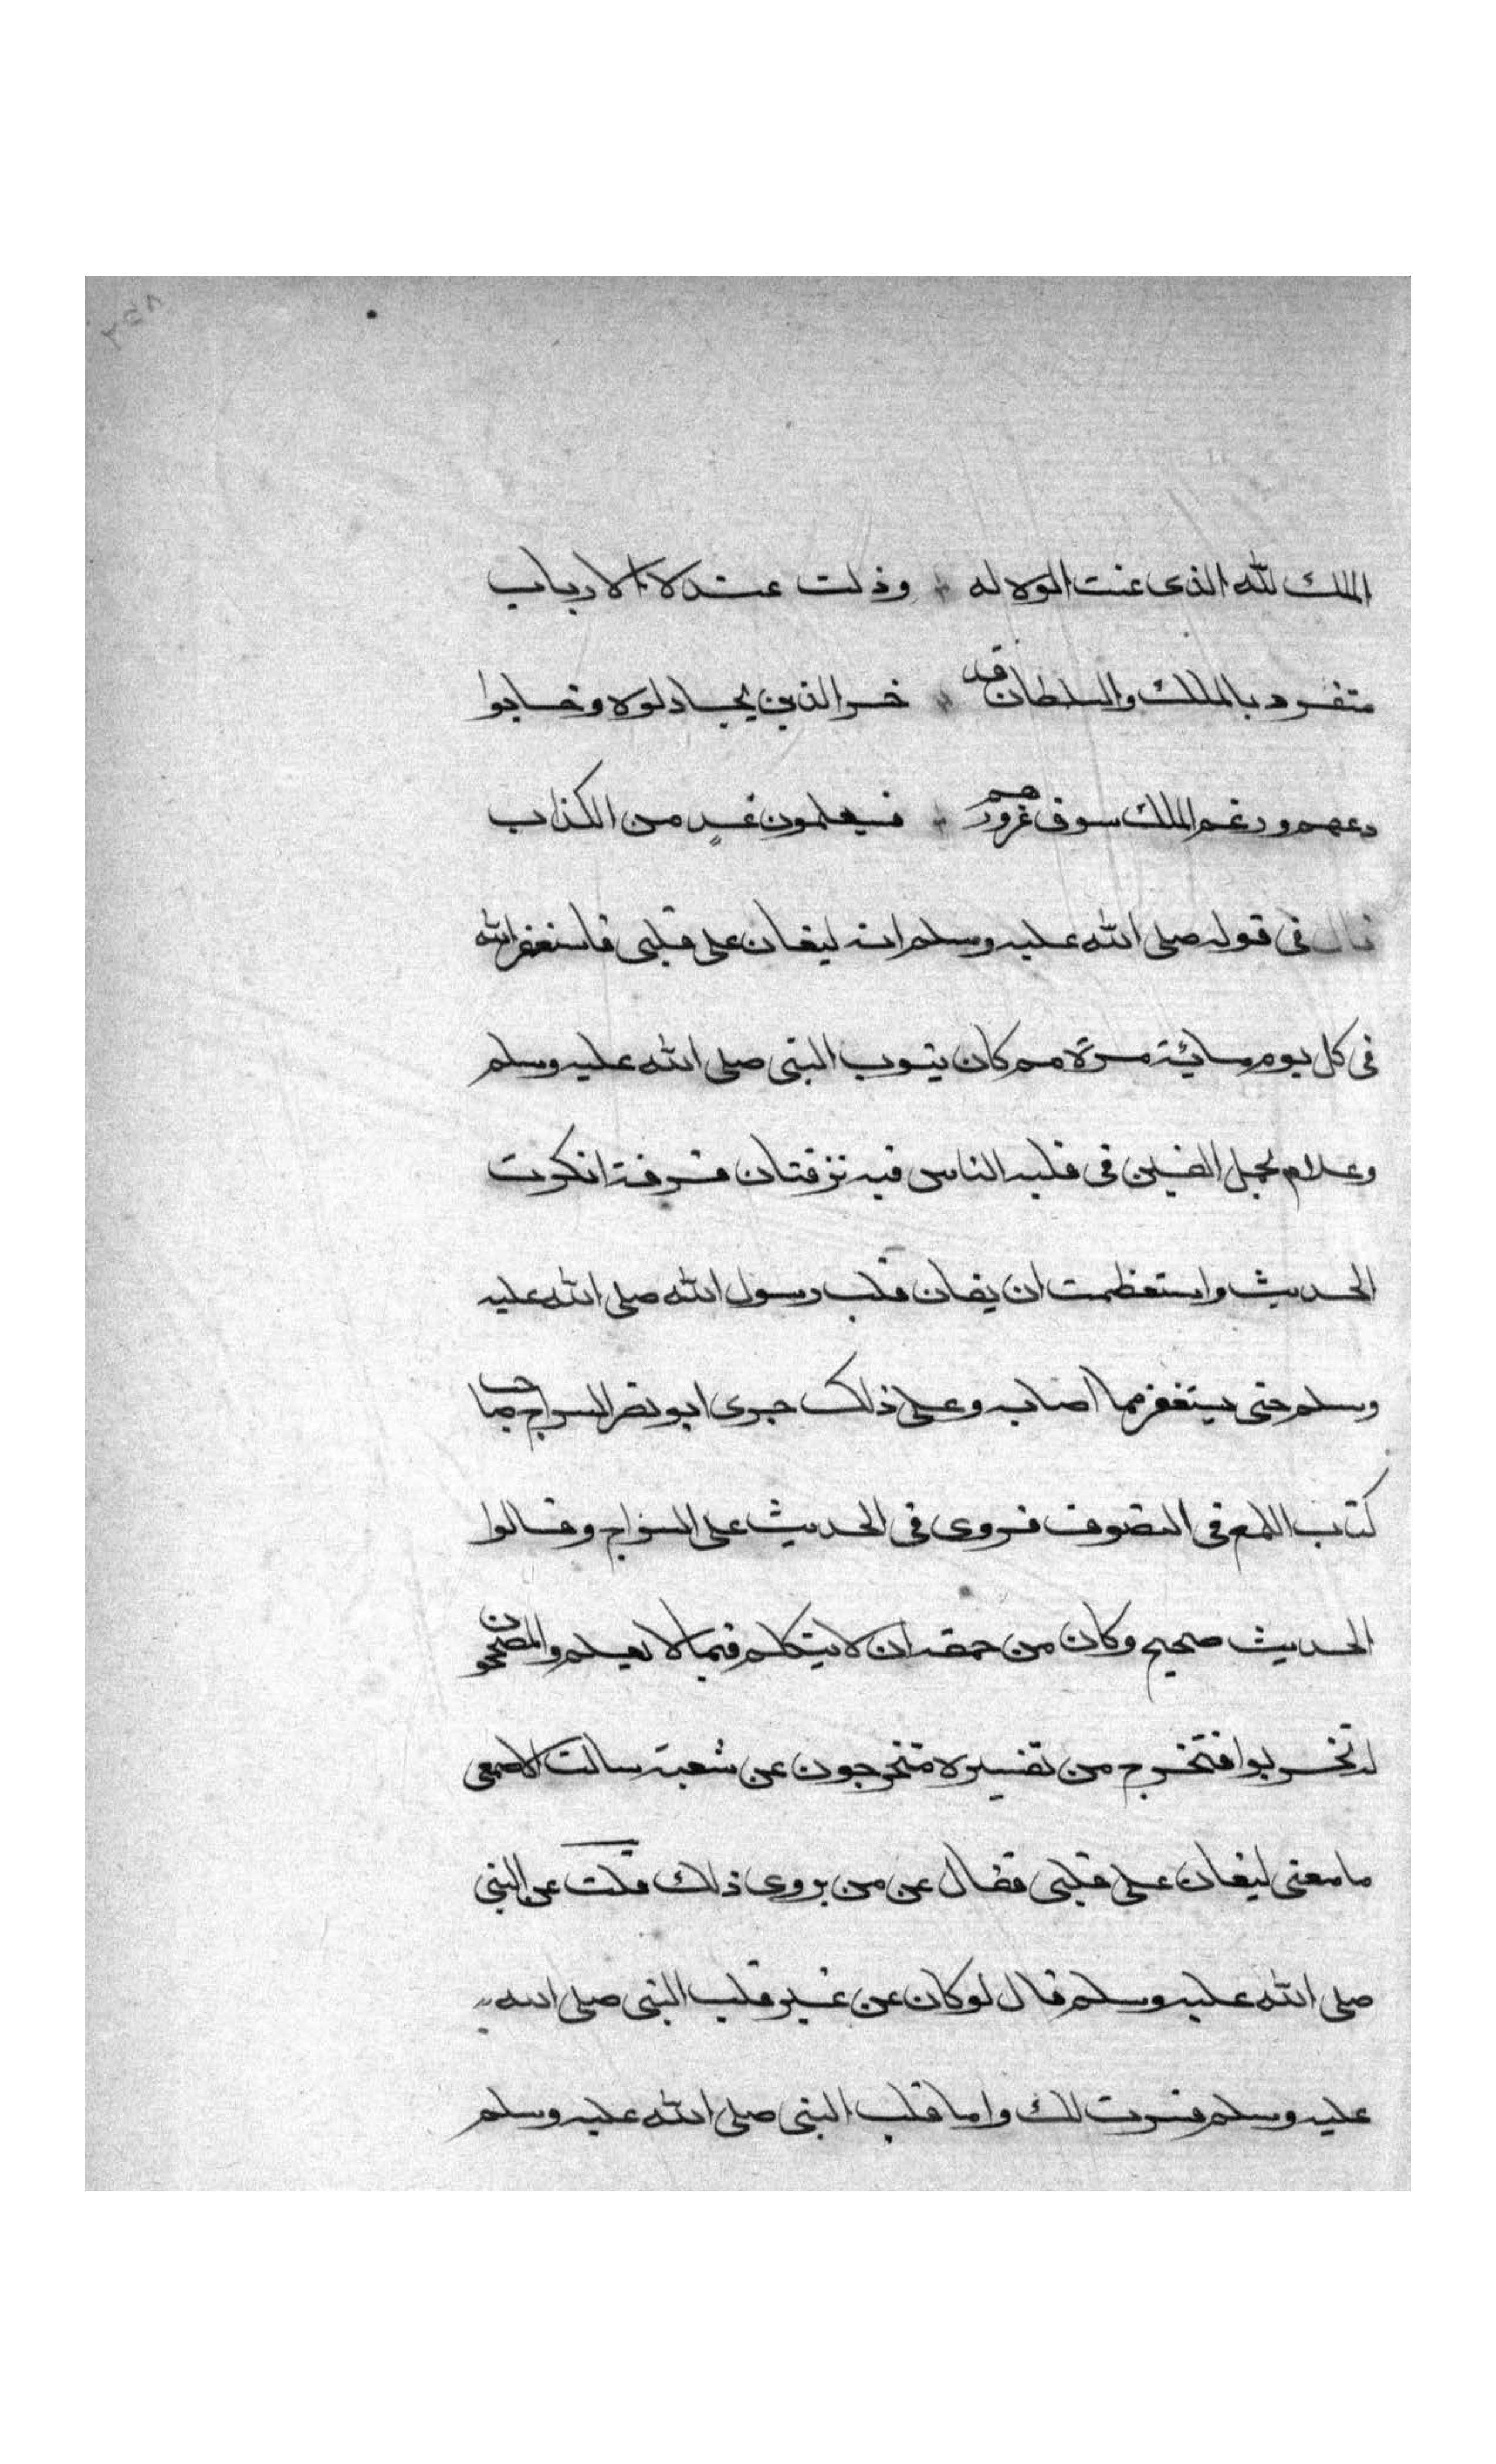 الملك لله الذى عنت الوله له وذلت عنده الارباب
متفرد بالملك والسلطان قد خسر الذين يجادلوه وخابوا
دعهم ورغم الملك سوف غرورهم فسيعلمون غدٍ من الكذاب
قال فى قوله صلى الله عليه وسلم انه ليغان على قلبى فاستغفر الله
فى كل يوم مائية مرة مم كان يتوب النبى صلى الله عليه وسلم
وعلام يحمل الغين فى قلبه الناس فيه فرقتان فرقة انكرت
الحديث واستعظمت ان يغان قلب رسول الله صلى الله عليه
وسلم حتى يستغفر مما اصابه وعلى ذلك جرى ابو نصر السراج صاحب
كتاب اللمع فى التصوف فروى فى الحديث على السراج وقالوا
الحديث صحيح وكان من حقه ان لا يتكلم فيما لا يعلم والمصححون
له تحزبوا فتخرج من تفسيره متخرجون عن شعبة سالت الاصمعى
ما معنى ليغان على قلبى فقال عن من يروى ذلك قلت عن النبى
صلى الله عليه وسلم قال لو كان عن غير قلب النبى صلى الله
عليه وسلم فسرت لك واما قلب النبى صلى الله عليه وسلم